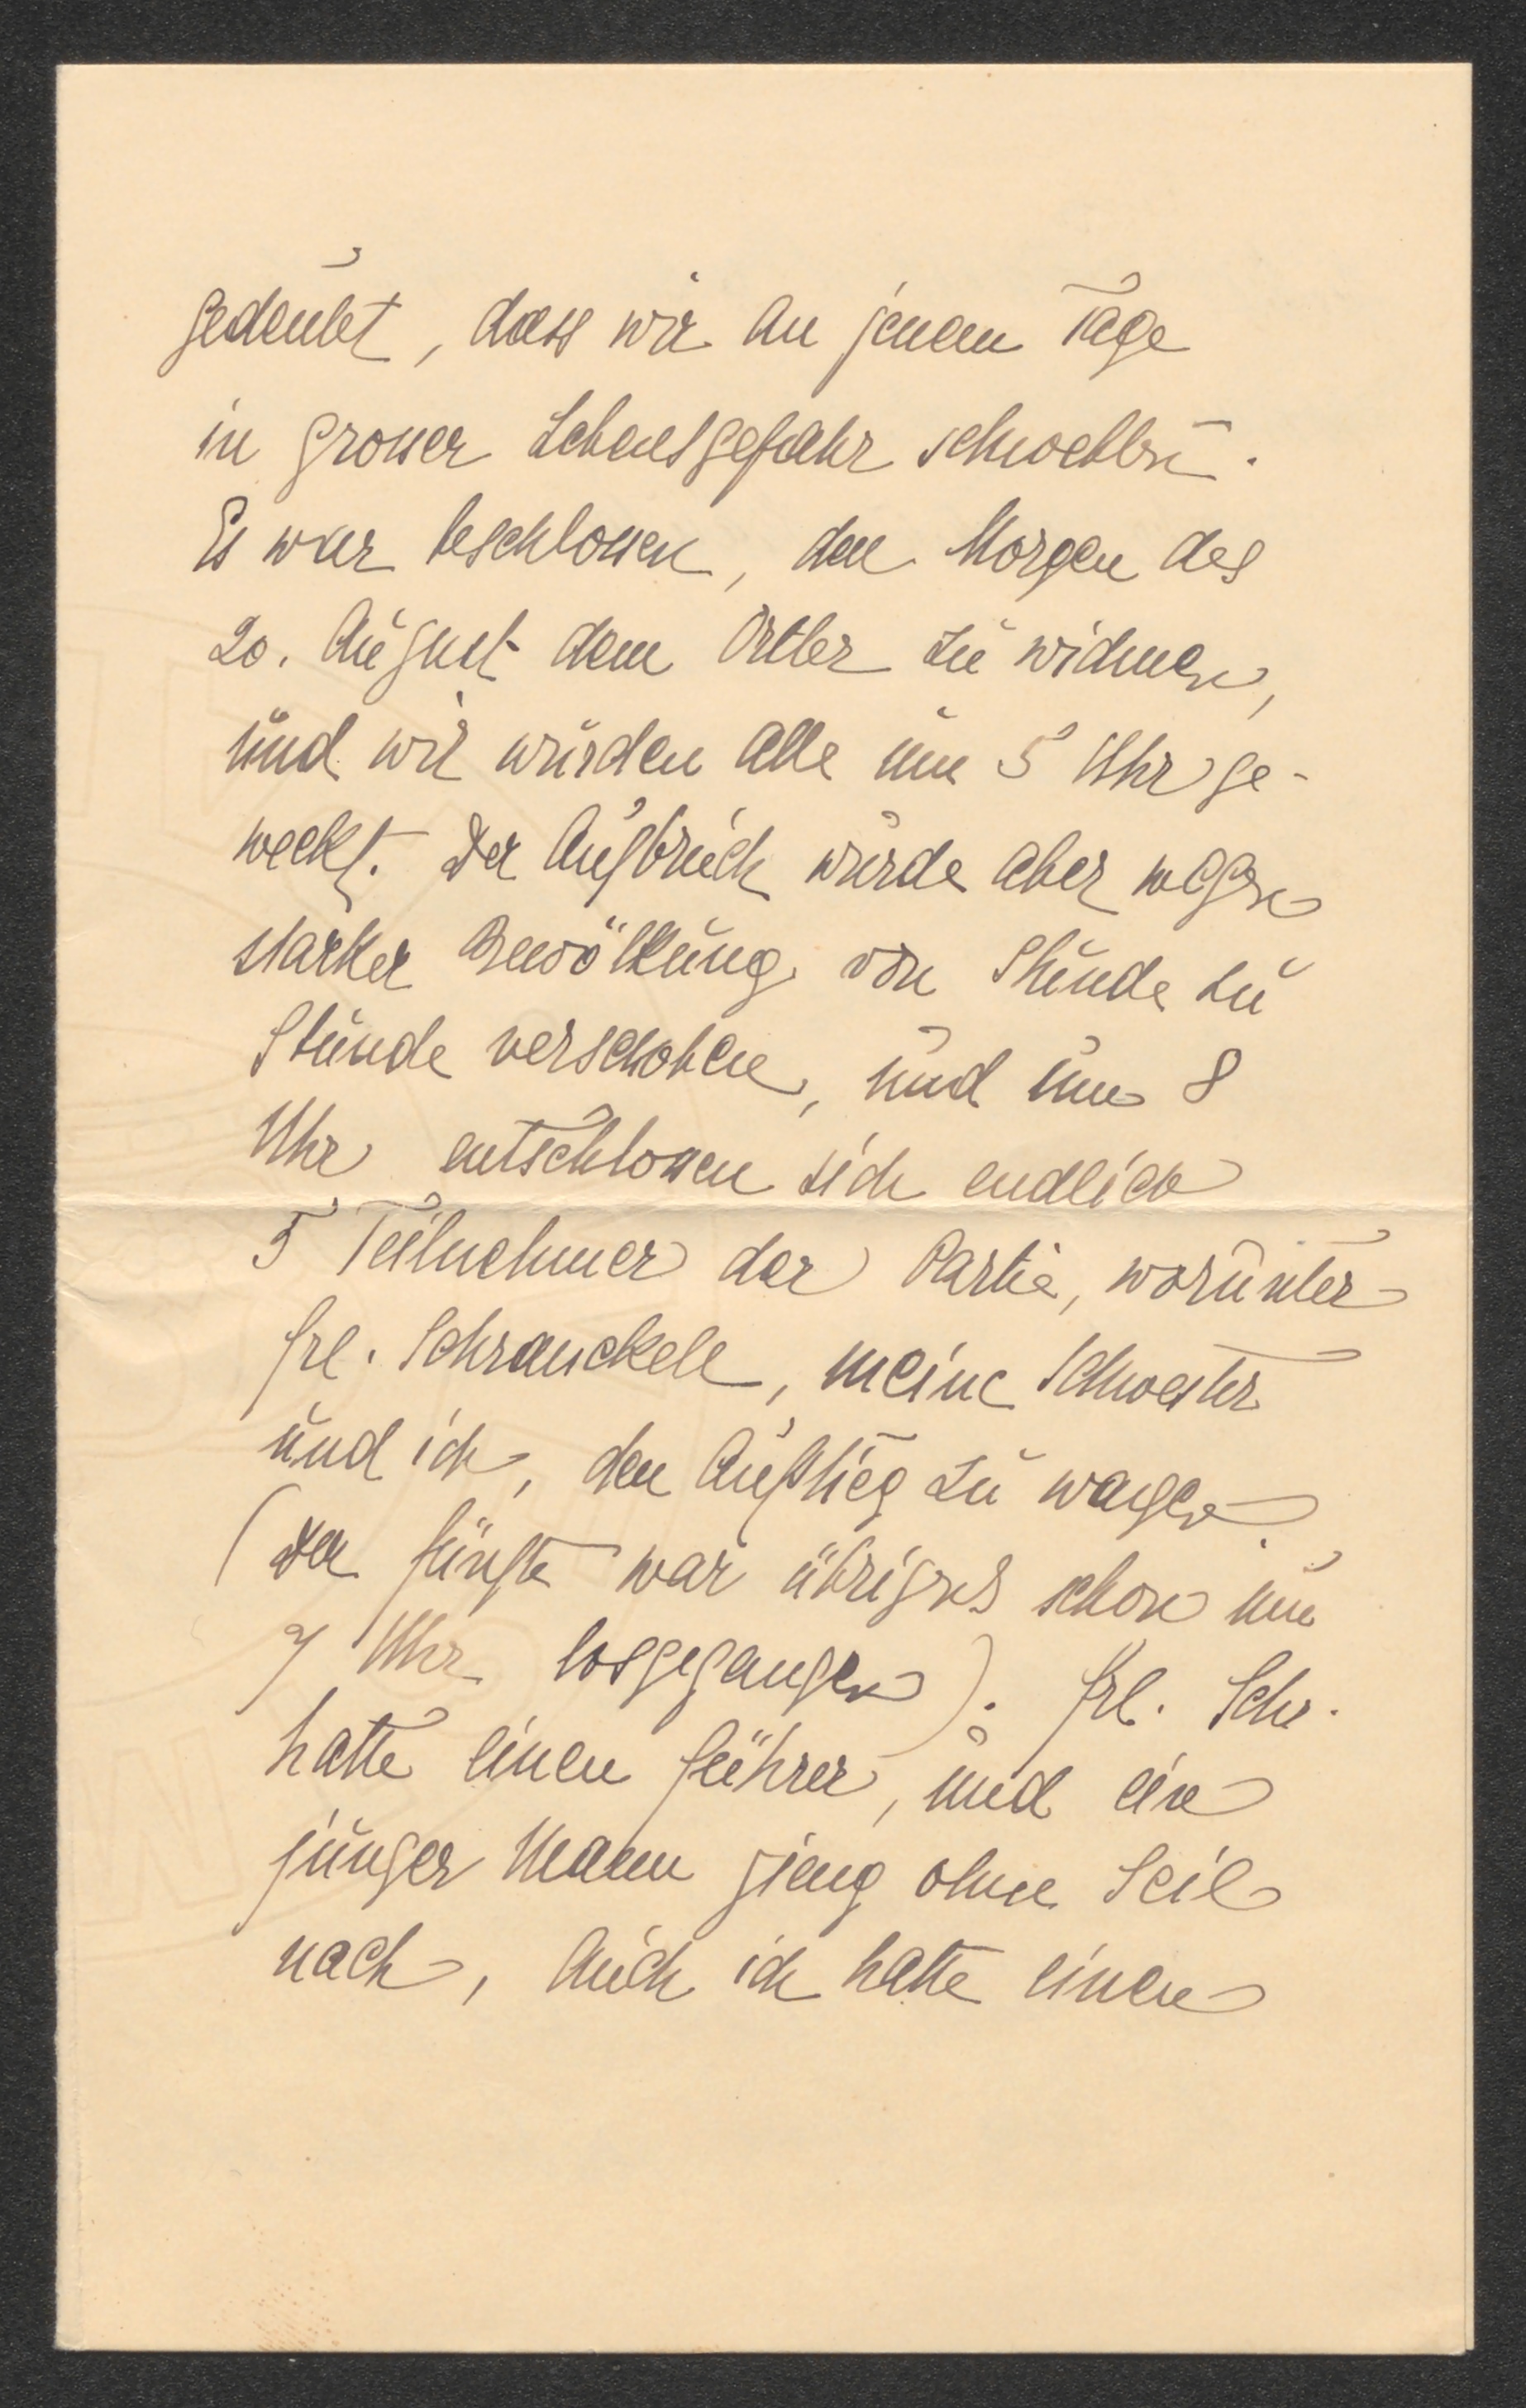 gedeutet, dass wir an jenem Tage
in grosser Lebensgefahr schwebten.
Es war beschlossen, den Morgen des
20. August dem Ortler zu widmen,
und wir wurden alle um 5 Uhr ge-
weckt. Der Aufbruch wurde aber wegen
starker Bewölkung von Stunde zu
Stunde verschoben, und um 8
Uhr entschlossen sich endlich
5 Teilnehmer der Partie, worunter
Frl. Schranckell, meine Schwester
und ich, den Aufstieg zu wagen.
(Der fünfte war übrigens schon um
7 Uhr losgegangen). Frl. Schr.
hatte einen Führer, und ein
junger Mann gieng ohne Seil
nach, auch ich hatte einen